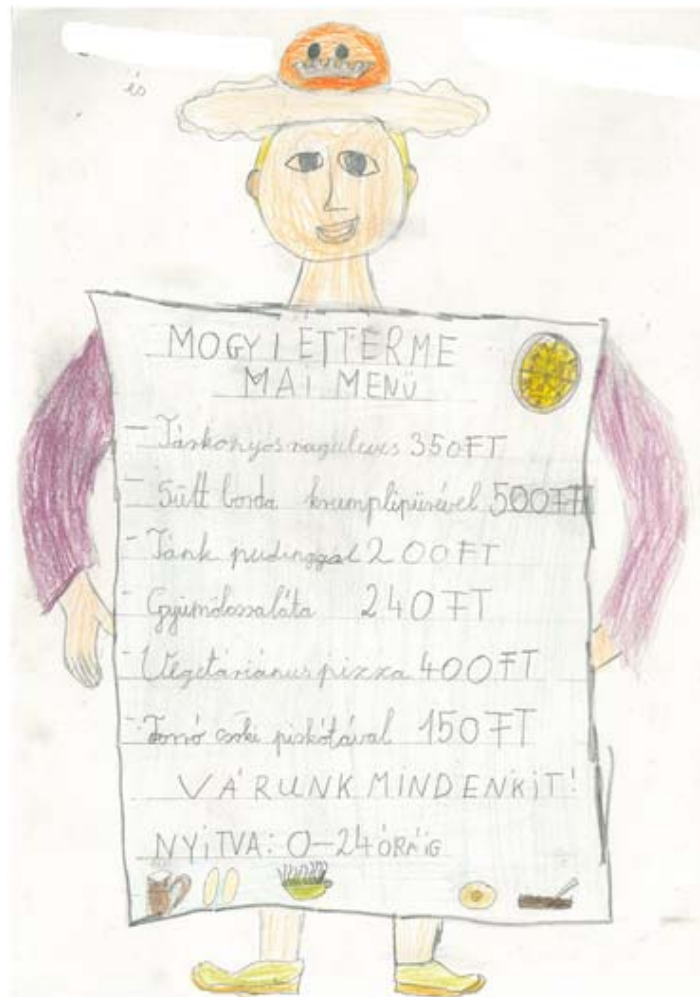 és
MOGYI ÉTTERME
MAI MENÜ
- Tárkonyos raguleves 350FT
- Sült borda krumplipürével 500FT
- Fánk pudinggal 200FT
- Gyümölcssaláta 240FT
- Vegetáriánus pizza 400FT
- Forró csoki piskótával 150FT
VÁRUNK MINDENKIT!
NYITVA: 0-24 ÓRÁIG